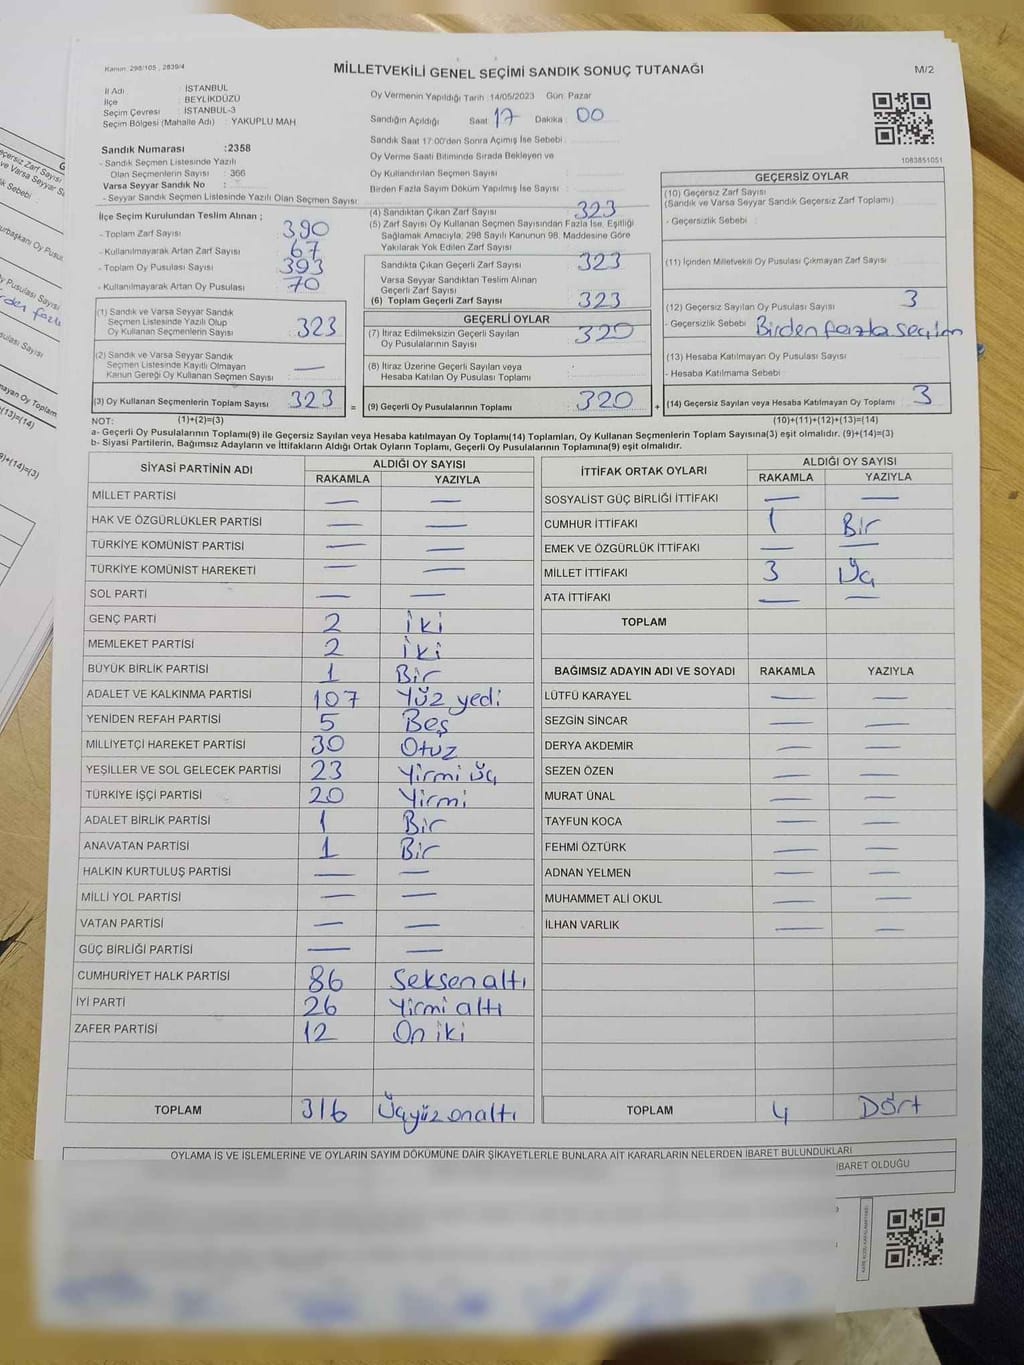 Kanun: 298/105 , 2839/4
MİLLETVEKİLİ GENEL SEÇİMİ SANDIK SONUÇ TUTANAĞI
M/2
İl Adı : İSTANBUL
İlçe : BEYLİKDÜZÜ
Seçim Çevresi : İSTANBUL-3
Seçim Bölgesi (Mahalle Adı) : YAKUPLU MAH
Sandık Numarası :2358
- Sandık Seçmen Listesinde Yazılı
Olan Seçmenlerin Sayısı : 366
Varsa Seyyar Sandık No :
- Seyyar Sandık Seçmen Listesinde Yazılı Olan Seçmen Sayısı:
Oy Vermenin Yapıldığı Tarih :14/05/2023 Gün: Pazar
Sandığın Açıldığı Saat: 17 Dakika : 00
Sandık Saat 17:00'den Sonra Açılmış İse Sebebi :
Oy Verme Saati Bitiminde Sırada Bekleyen ve
Oy Kullandırılan Seçmen Sayısı :
Birden Fazla Sayım Döküm Yapılmış İse Sayısı :
1083851051
İlçe Seçim Kurulundan Teslim Alınan ;
- Toplam Zarf Sayısı : 390
- Kullanılmayarak Artan Zarf Sayısı : 67
- Toplam Oy Pusulası Sayısı : 393
- Kullanılmayarak Artan Oy Pusulası : 70
(1) Sandık ve Varsa Seyyar Sandık
Seçmen Listesinde Yazılı Olup
Oy Kullanan Seçmenlerin Sayısı : 323
(2) Sandık ve Varsa Seyyar Sandık
Seçmen Listesinde Kayıtlı Olmayan
Kanun Gereği Oy Kullanan Seçmen Sayısı : —
(3) Oy Kullanan Seçmenlerin Toplam Sayısı : 323
(4) Sandıktan Çıkan Zarf Sayısı : 323
(5) Zarf Sayısı Oy Kullanan Seçmen Sayısından Fazla İse, Eşitliği
Sağlamak Amacıyla, 298 Sayılı Kanunun 98. Maddesine Göre
Yakılarak Yok Edilen Zarf Sayısı :
Sandıkta Çıkan Geçerli Zarf Sayısı : 323
Varsa Seyyar Sandıktan Teslim Alınan
Geçerli Zarf Sayısı :
(6) Toplam Geçerli Zarf Sayısı : 323
GEÇERLİ OYLAR
(7) İtiraz Edilmeksizin Geçerli Sayılan
Oy Pusulalarının Sayısı : 320
(8) İtiraz Üzerine Geçerli Sayılan veya
Hesaba Katılan Oy Pusulası Toplamı :
= (9) Geçerli Oy Pusulalarının Toplamı : 320
GEÇERSİZ OYLAR
(10) Geçersiz Zarf Sayısı
(Sandık ve Varsa Seyyar Sandık Geçersiz Zarf Toplamı) :
- Geçersizlik Sebebi :
(11) İçinden Milletvekili Oy Pusulası Çıkmayan Zarf Sayısı :
(12) Geçersiz Sayılan Oy Pusulası Sayısı : 3
- Geçersizlik Sebebi : Birden fazla seçilen
(13) Hesaba Katılmayan Oy Pusulası Sayısı :
- Hesaba Katılmama Sebebi :
+ (14) Geçersiz Sayılan veya Hesaba Katılmayan Oy Toplamı : 3
NOT: (1)+(2)=(3) (10)+(11)+(12)+(13)=(14)
a- Geçerli Oy Pusulalarının Toplamı(9) ile Geçersiz Sayılan veya Hesaba katılmayan Oy Toplamı(14) Toplamları, Oy Kullanan Seçmenlerin Toplam Sayısına(3) eşit olmalıdır. (9)+(14)=(3)
b- Siyasi Partilerin, Bağımsız Adayların ve İttifakların Aldığı Ortak Oyların Toplamı, Geçerli Oy Pusulalarının Toplamına(9) eşit olmalıdır.
SİYASİ PARTİNİN ADI ALDIĞI OY SAYISI
RAKAMLA YAZIYLA
MİLLET PARTİSİ — —
HAK VE ÖZGÜRLÜKLER PARTİSİ — —
TÜRKİYE KOMÜNİST PARTİSİ — —
TÜRKİYE KOMÜNİST HAREKETİ — —
SOL PARTİ — —
GENÇ PARTİ 2 İki
MEMLEKET PARTİSİ 2 İki
BÜYÜK BİRLİK PARTİSİ 1 Bir
ADALET VE KALKINMA PARTİSİ 107 Yüz yedi
YENİDEN REFAH PARTİSİ 5 Beş
MİLLİYETÇİ HAREKET PARTİSİ 30 Otuz
YEŞİLLER VE SOL GELECEK PARTİSİ 23 Yirmi üç
TÜRKİYE İŞÇİ PARTİSİ 20 Yirmi
ADALET BİRLİK PARTİSİ 1 Bir
ANAVATAN PARTİSİ 1 Bir
HALKIN KURTULUŞ PARTİSİ — —
MİLLİ YOL PARTİSİ — —
VATAN PARTİSİ — —
GÜÇ BİRLİĞİ PARTİSİ — —
CUMHURİYET HALK PARTİSİ 86 Seksen altı
İYİ PARTİ 26 Yirmi altı
ZAFER PARTİSİ 12 On iki
TOPLAM 316 Üçyüz onaltı
İTTİFAK ORTAK OYLARI ALDIĞI OY SAYISI
RAKAMLA YAZIYLA
SOSYALİST GÜÇ BİRLİĞİ İTTİFAKI — —
CUMHUR İTTİFAKI 1 Bir
EMEK VE ÖZGÜRLÜK İTTİFAKI — —
MİLLET İTTİFAKI 3 Üç
ATA İTTİFAKI — —
TOPLAM
BAĞIMSIZ ADAYIN ADI VE SOYADI RAKAMLA YAZIYLA
LÜTFÜ KARAYEL — —
SEZGİN SİNCAR — —
DERYA AKDEMİR — —
SEZEN ÖZEN — —
MURAT ÜNAL — —
TAYFUN KOCA — —
FEHMİ ÖZTÜRK — —
ADNAN YELMEN — —
MUHAMMET ALİ OKUL — —
İLHAN VARLIK — —
TOPLAM 4 Dört
OYLAMA İŞ VE İŞLEMLERİNE VE OYLARIN SAYIM DÖKÜMÜNE DAİR ŞİKAYETLERLE BUNLARA AİT KARARLARIN NELERDEN İBARET BULUNDUKLARI
İBARET OLDUĞU